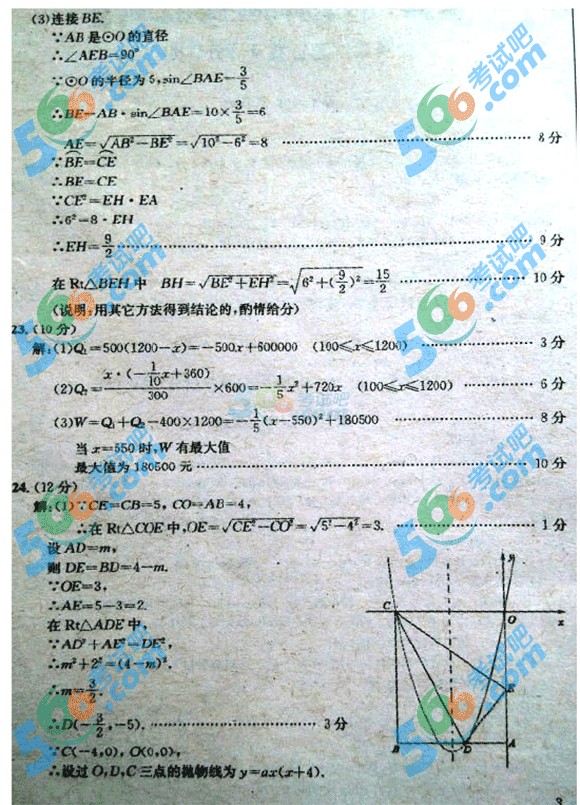 (3)连接 BE.
∵AB 是⊙O 的直径
∴∠AEB=90°
∵⊙O 的半径为 5,sin∠BAE=3/5
∴BE=AB·sin∠BAE=10×3/5=6
AE=√(AB²-BE²)=√(10²-6²)=8 ………… 8 分
∵BE⌒=CE⌒
∴BE=CE
∵CE²=EH·EA
∴6²=8·EH
∴EH=9/2 ………… 9 分
在 Rt△BEH 中 BH=√(BE²+EH²)=√(6²+(9/2)²)=15/2 ………… 10 分
(说明:用其它方法得到结论的,酌情给分)
23.(10 分)
解:(1)Q₁=500(1200-x)=-500x+600000 (100≤x≤1200) ………… 3 分
(2)Q₂=x·(-1/10x+360)/300×600=-1/5x²+720x (100≤x≤1200) ………… 6 分
(3)W=Q₁+Q₂-400×1200=-1/5(x-550)²+180500 ………… 8 分
当 x=550 时,W 有最大值
最大值为 180500 元 ………… 10 分
24.(12 分)
解:(1)∵CE=CB=5, CO=AB=4,
∴在 Rt△COE 中,OE=√(CE²-CO²)=√(5²-4²)=3. ………… 1 分
设 AD=m,
则 DE=BD=4-m.
∵OE=3,
∴AE=5-3=2.
在 Rt△ADE 中,
∵AD²+AE²=DE²,
∴m²+2²=(4-m)².
∴m=3/2.
∴D(-3/2,-5). ………… 3 分
∵C(-4,0), O(0,0),
∴设过 O,D,C 三点的抛物线为 y=ax(x+4).
y
C
O
x
E
B
D
A
3
566考试吧
.com